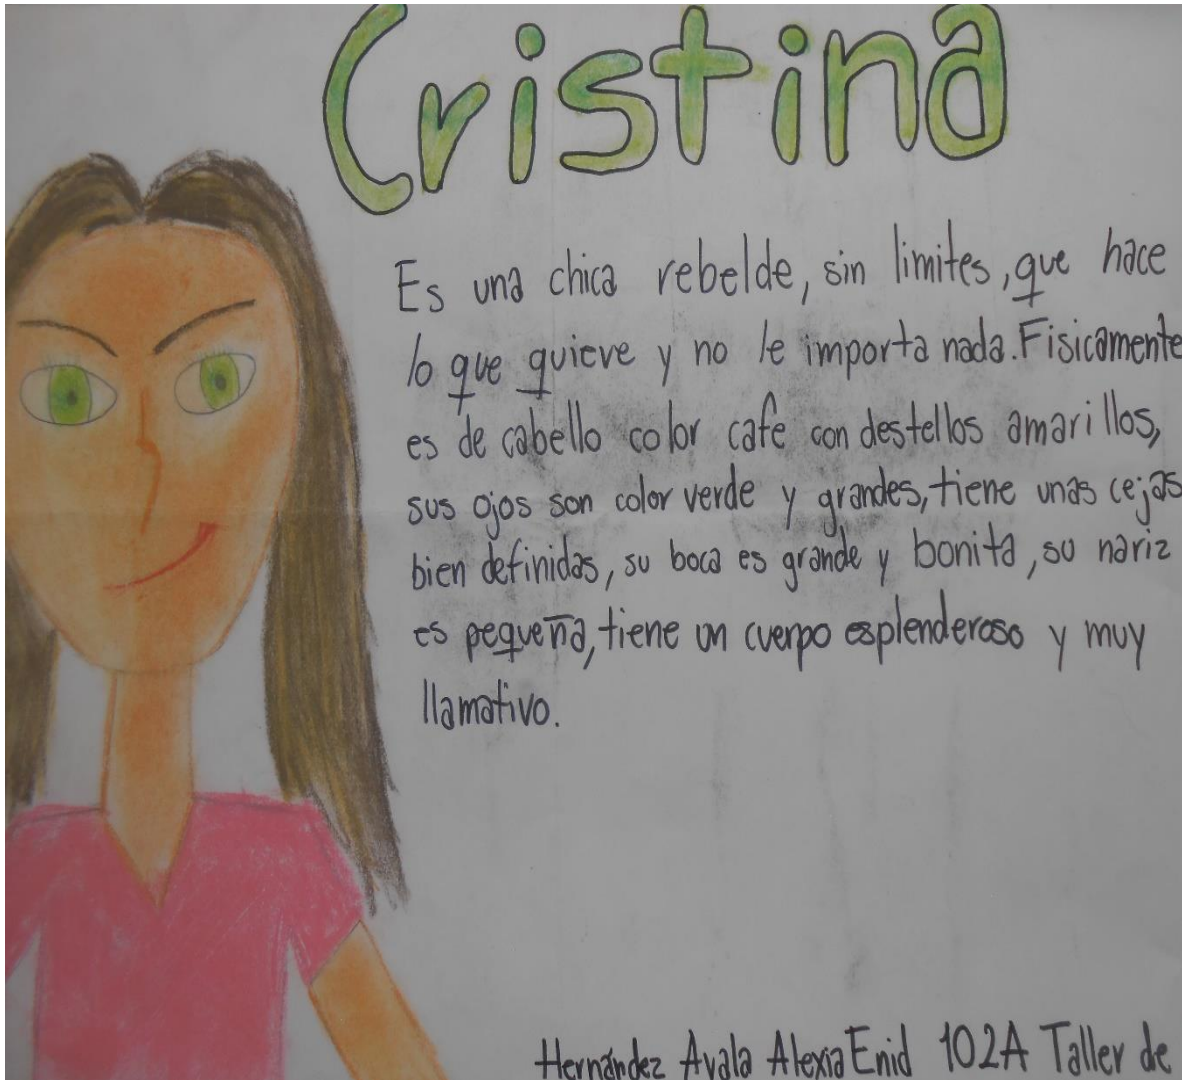 Cristina
Es una chica rebelde, sin limites, que hace
lo que quieve y no le importa nada. Fisicamente
es de cabello color cafe con destellos amarillos,
sus ojos son color verde y grandes, tiene unas cejas
bien definidas, su boca es grande y bonita, su nariz
es pequeña, tiene un cuerpo esplenderoso y muy
llamativo.
Hernández Ayala Alexia Enid 102A Taller de